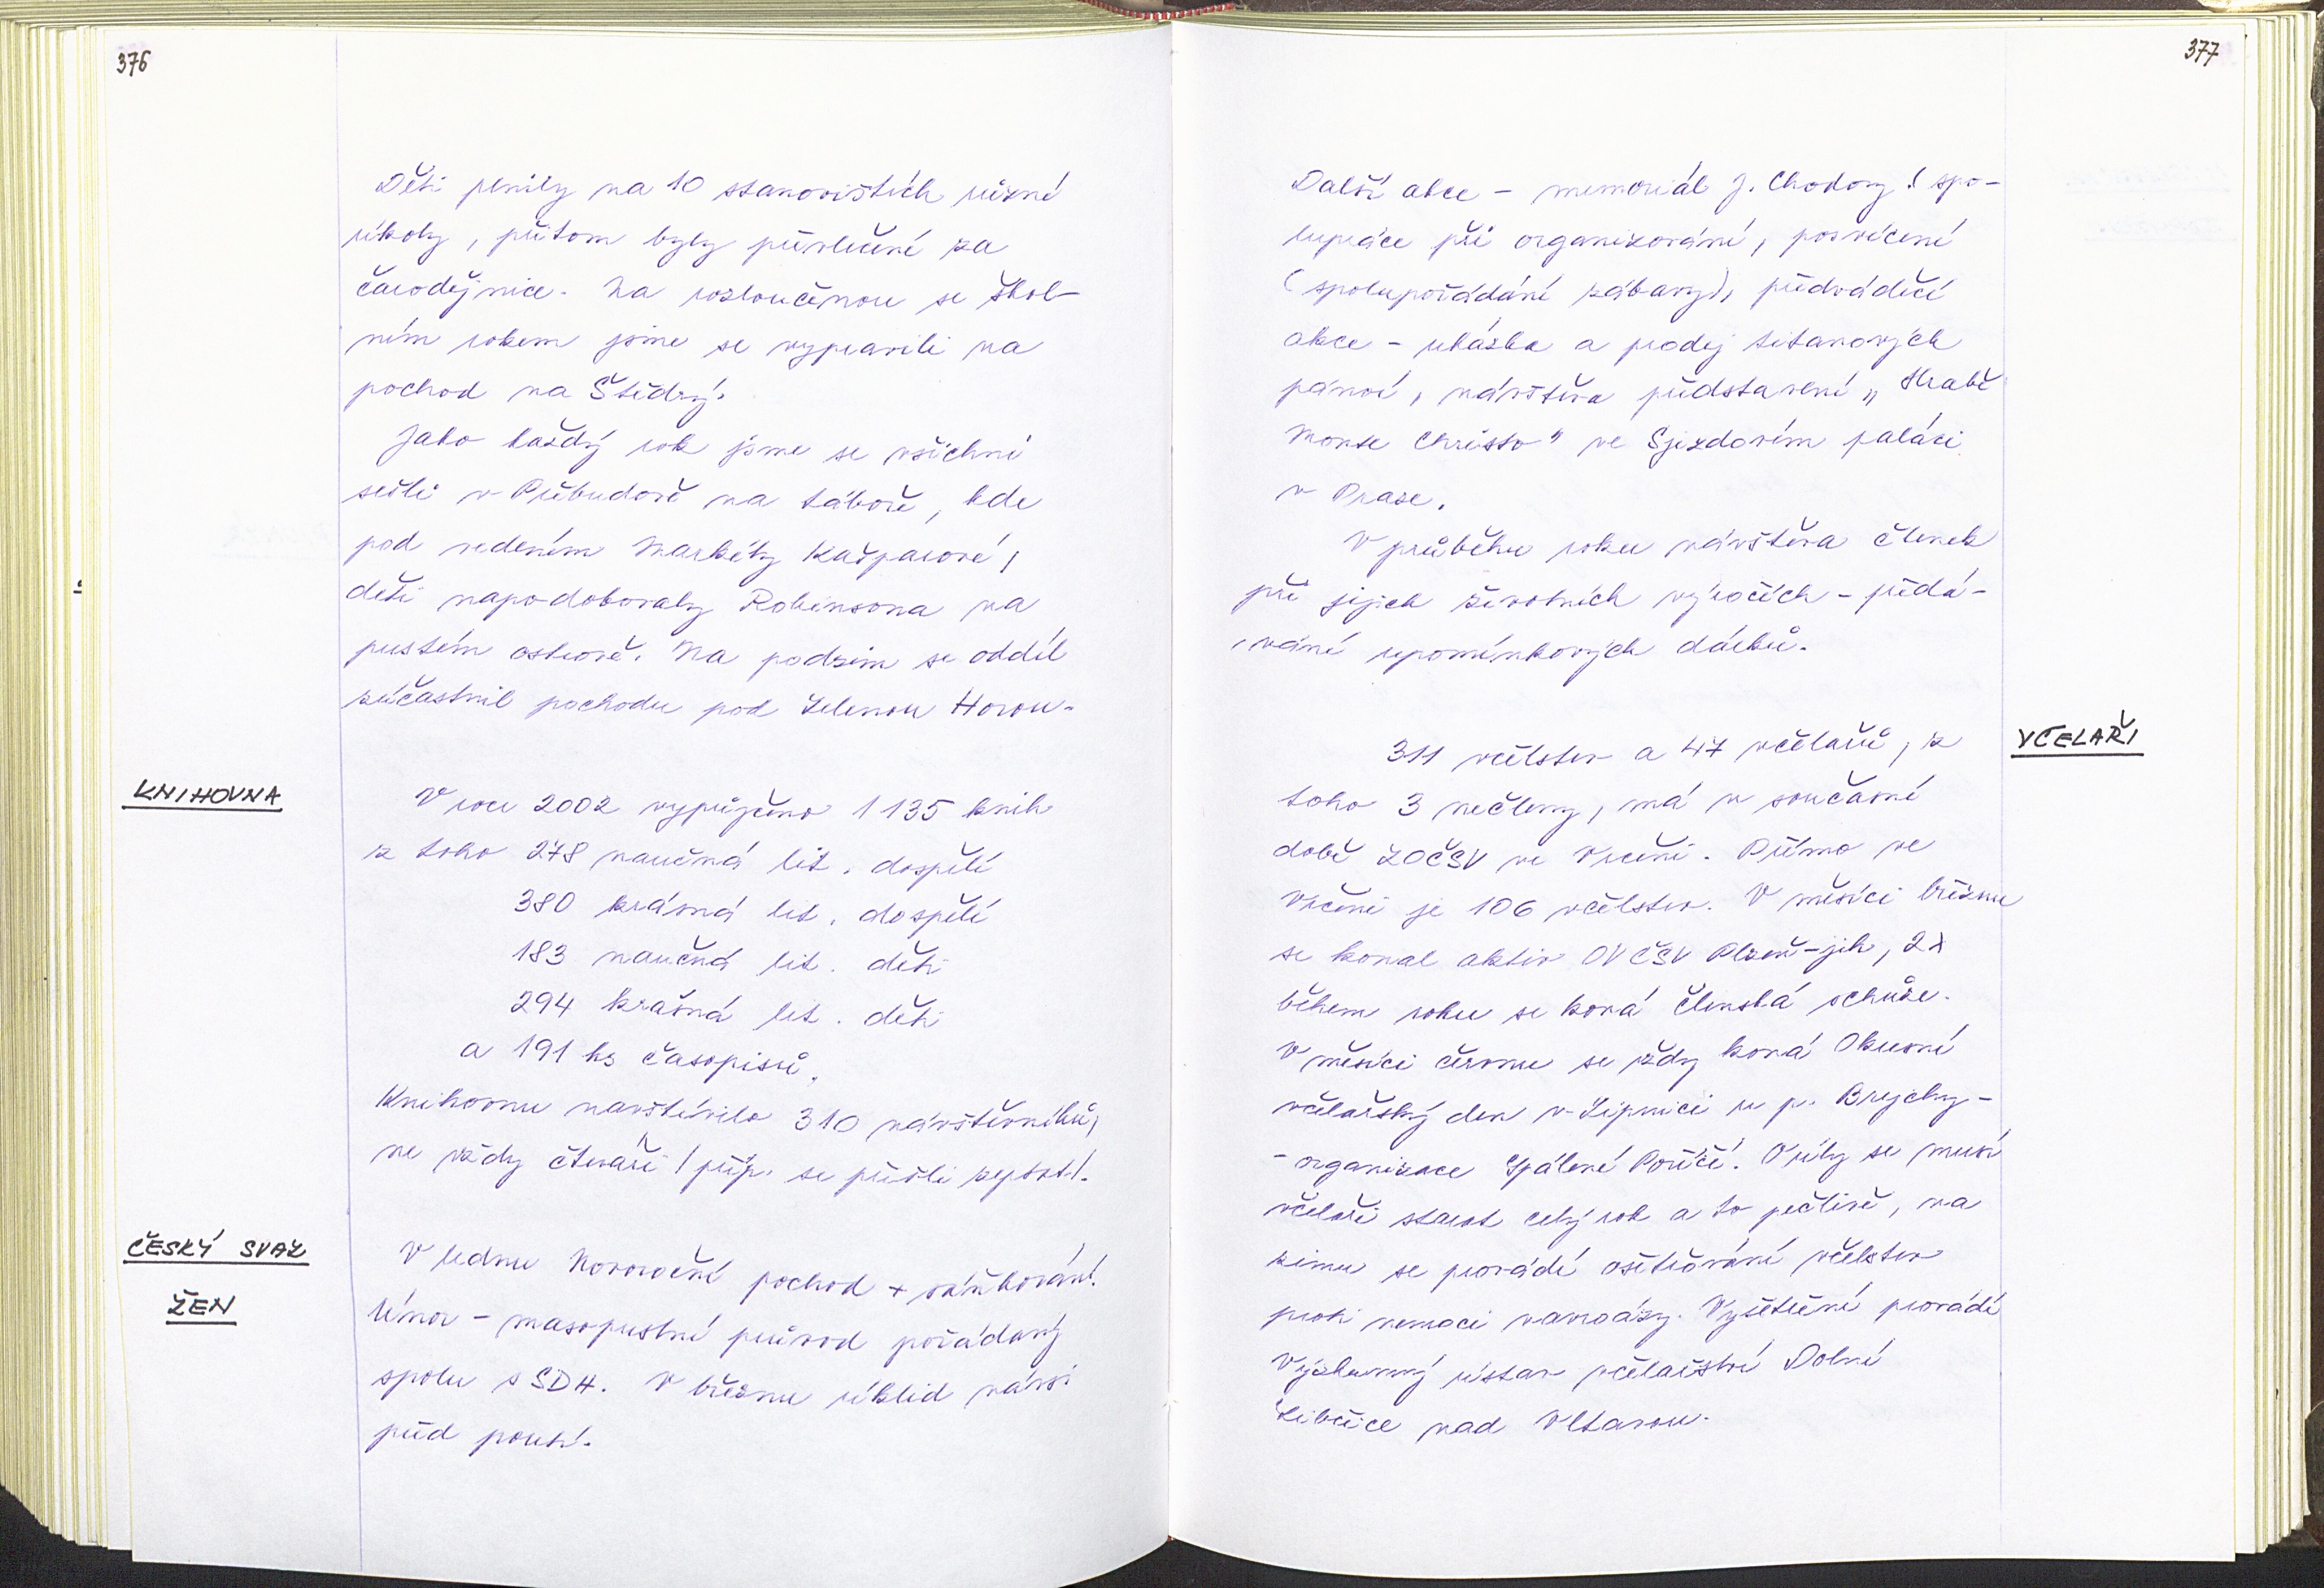 376
Děti plnily na 10 stanovištích různé
úkoly, přitom byly převlečené za
čarodějnice. Na rozloučenou se škol-
ním rokem jsme se vypravili na
pochod na Štědrý.
Jako každý rok jsme se všichni
sešli v Přebudově na táboře, kde
pod vedením Markéty Kašparové,
děti napodobovaly Robinsona na
pustém ostrově. Na podzim se oddíl
zúčastnil pochodu pod Zelenou Horou.
KNIHOVNA
V roce 2002 vypůjčeno 1 135 knih
z toho 278 naučná lit. dospělí
380 krásná lit. dospělí
183 naučná lit. děti
294 krásná lit. děti
a 191 ks časopisů.
Knihovnu navštívilo 310 návštěvníků,
ne vždy čtenáři / příp. se přišli zeptat/.
ČESKÝ SVAZ
ŽEN
V lednu Novoroční pochod + sáňkování.
Únor - masopustní průvod pořádaný
spolu s SDH. V březnu úklid návsi
před poutí.
377
Další akce - memoriál J. Chodory ( spo-
lupráce při organizování, posvícení
(spolupořádání zábavy), předváděčí
akce - ukázka a prodej titanových
pánví, návštěva představení „Hrabě
Monte Christo" ve Sjezdovém paláci
v Praze.
V průběhu roku návštěva členek
při jejich životních výročích - předá-
vání upomínkových dárků.
VČELAŘI
311 včelstev a 47 včelařů, z
toho 3 nečleny, má v současné
době ZOČSV ve Vrčeni. Přímo ve
Vrčeni je 106 včelstev. V měsíci březnu
se konal aktiv OV ČSV Plzeň-jih, 2x
během roku se koná členská schůze.
V měsíci červnu se vždy koná Okresní
včelařský den v Lipnici u p. Brejchy -
- organizace Spálené Poříčí. O včely se musí
včelaři starat celý rok a to pečlivě, na
zimu se provádí ošetřování včelstev
proti nemoci varroázy. Vyšetření provádí
Výzkumný ústav včelařství Dolní
Libčice nad Vltavou.